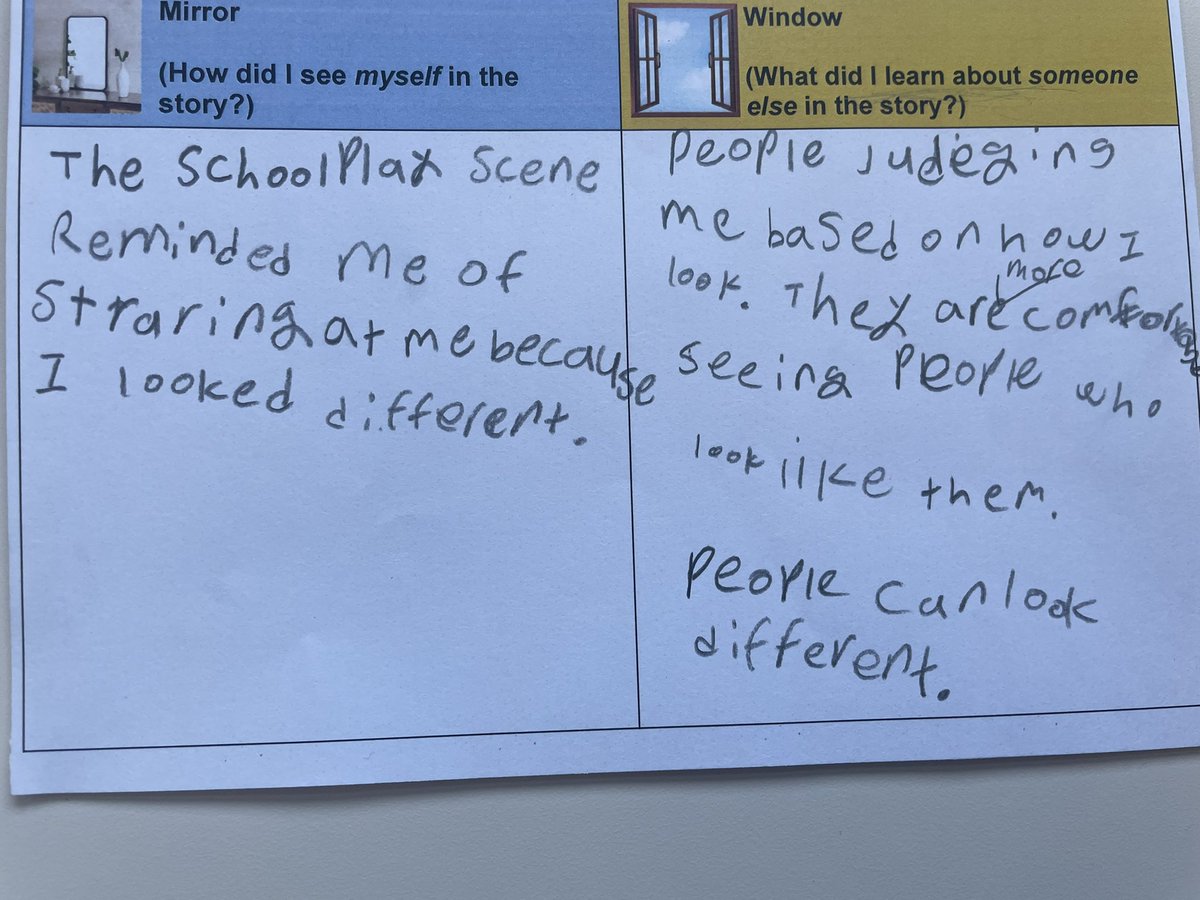 Mirror
(How did I see myself in the
story?)
The SchoolPlay Scene
Reminded me of
Straring at me because
I looked different.
Window
(What did I learn about someone
else in the story?)
People Judeging
me based on how I
look. They are more comfortable
seeing People who
look like them.
People can look
different.